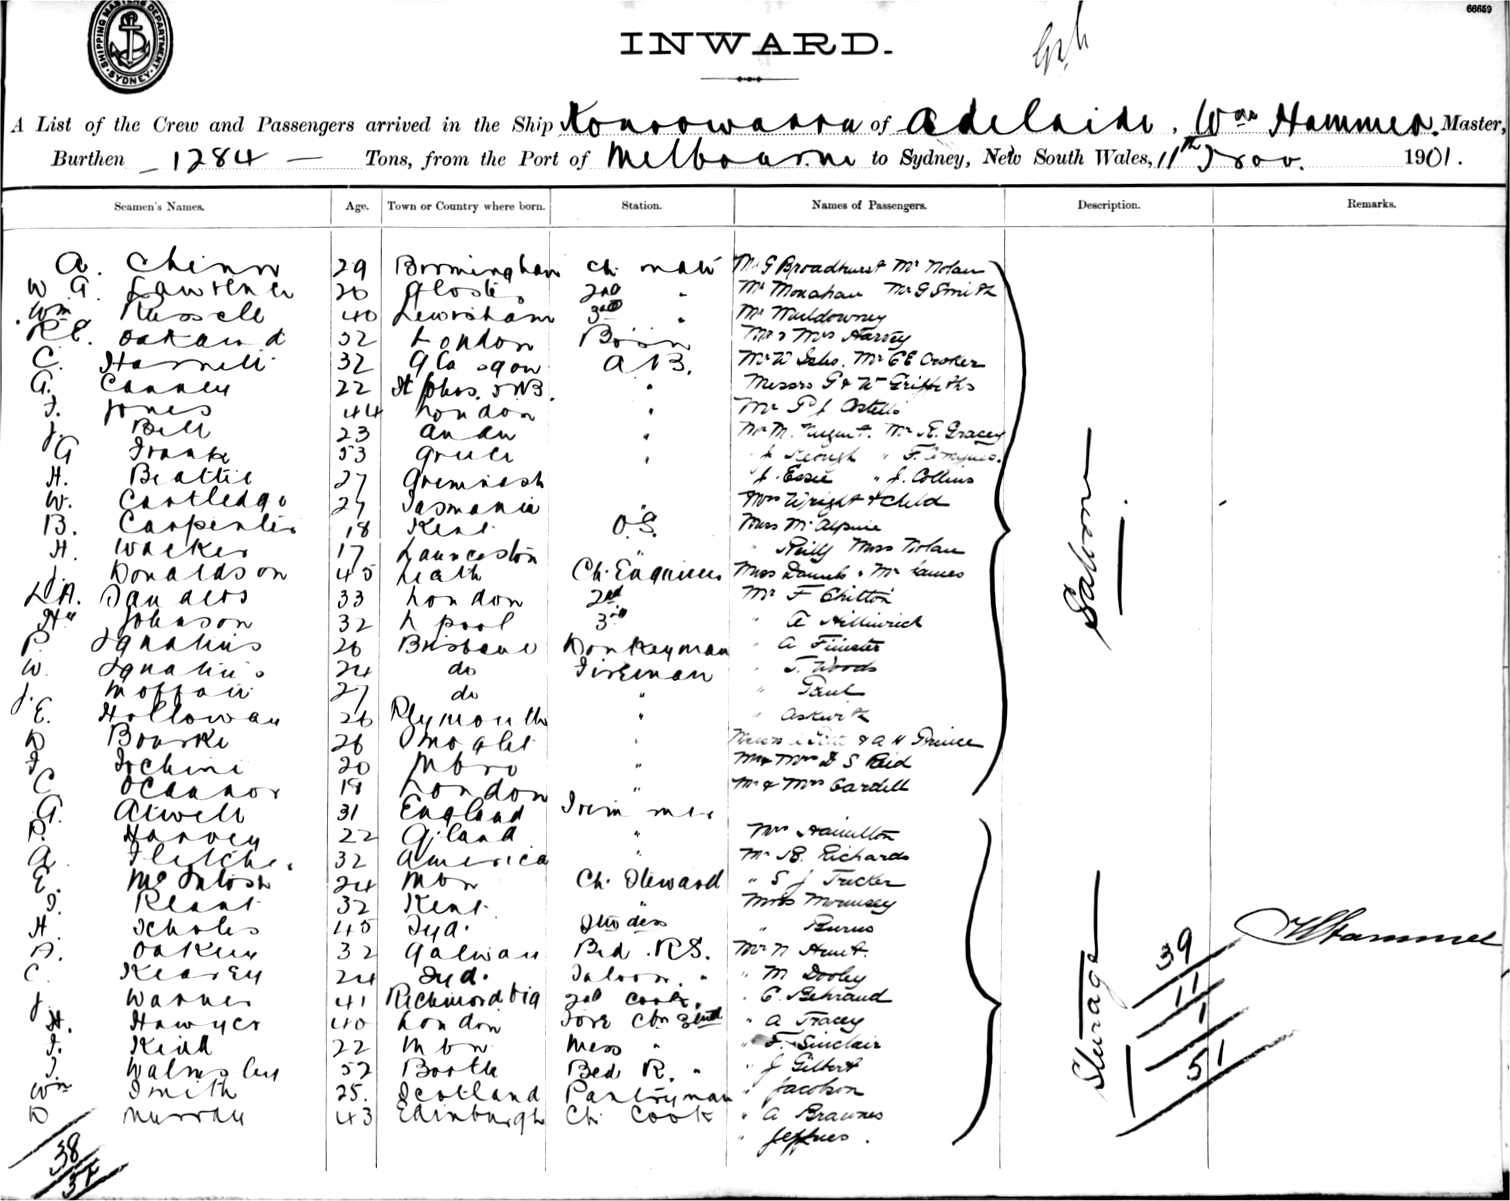 66659
SHIPPING MASTERS DEPARTMENT. SYDNEY.
INWARD.
A List of the Crew and Passengers arrived in the Ship Konoowarra of Adelaide, Wm Hammer. Master,
Burthen 1284 — Tons, from the Port of Melbourne to Sydney, New South Wales, 11th Nov. 1901.
Seamen's Names. Age. Town or Country where born. Station. Names of Passengers. Description. Remarks.
A. Chinn 29 Birmingham Ch. mate Mr G Broadhurst Mr Nolan
W G. Lawrence 26 Gloster 2nd " Mr Monahan Mr G Smith
Wm Russell 40 Lewisham 3rd " Mr Muldowney
R E. 32 London Bosn Mr & Mrs Harvey
C. 32 Glasgow A B. Mr W Mr C E Crooker
G. 22 St Johns. N B. " Messrs G & Wm Griffiths
J. Jones 44 London " Mr P J
J. Bell 23 " Mr M. Nugent. Mr R. Gracey
G Franke 53 Greece " " J Keough "
H. Beattie 27 Greenwich " J. Essie " J. Collins
W. Cartledge 27 Tasmania " Mrs Wright & Child
B. Carpenter 18 Kent O.S. Miss McAlpine
H. Walker 17 Launceston " " Reilly Miss Nolan
J. Donaldson 45 Leith Ch. Engineer Miss Daniels " Mr James
Sanders 33 London 2nd Mr F Chitton
Hy Johnson 32 L pool 3rd " A
P. Ignatius 26 Brisbane Donkeyman " A
W. Ignatius 24 do Fireman " T. Woods
J. Moffatt 27 do " " Paul
E. Holloway 26 Plymouth " " Askwith
D Bourke 26 " & A H Prince
20 Mbro " Mr & Mrs D S Reid
C OConnor 19 London " Mr & Mrs Cardell
G. Atwell 31 England Trimmer
P. Harvey 22 " Mrs Hamilton
A. Fletcher 32 America " Mr B. Richards
E. McIntosh 24 Mbn Ch. Steward " S J Tricker
J. Plant 32 Kent " Miss Mounsey
H. Scholes 45 Syd. Stwdess " Burns
A. 32 Galway Bed. R S. Mr N Hunt.
C. Kearey 24 Syd. Saloon. " " M Dooley
J. Warner 41 Richmond Vic 2nd Cook. " C. Behraud
H. Hawyer 40 London Fore Cbn " A Tracey
J. Kidd 22 Mbn Mess " " F. Sinclair
J. Walmsley 52 Bootle Bed R. " " J Gilbert
Wm Smith 25. Scotland Pantryman " Jacobson
D Murray 43 Edinburgh Ch. Cook " A
" Jeffries.
Saloon
Steerage
39
11
1
51
38
37
W Hammer